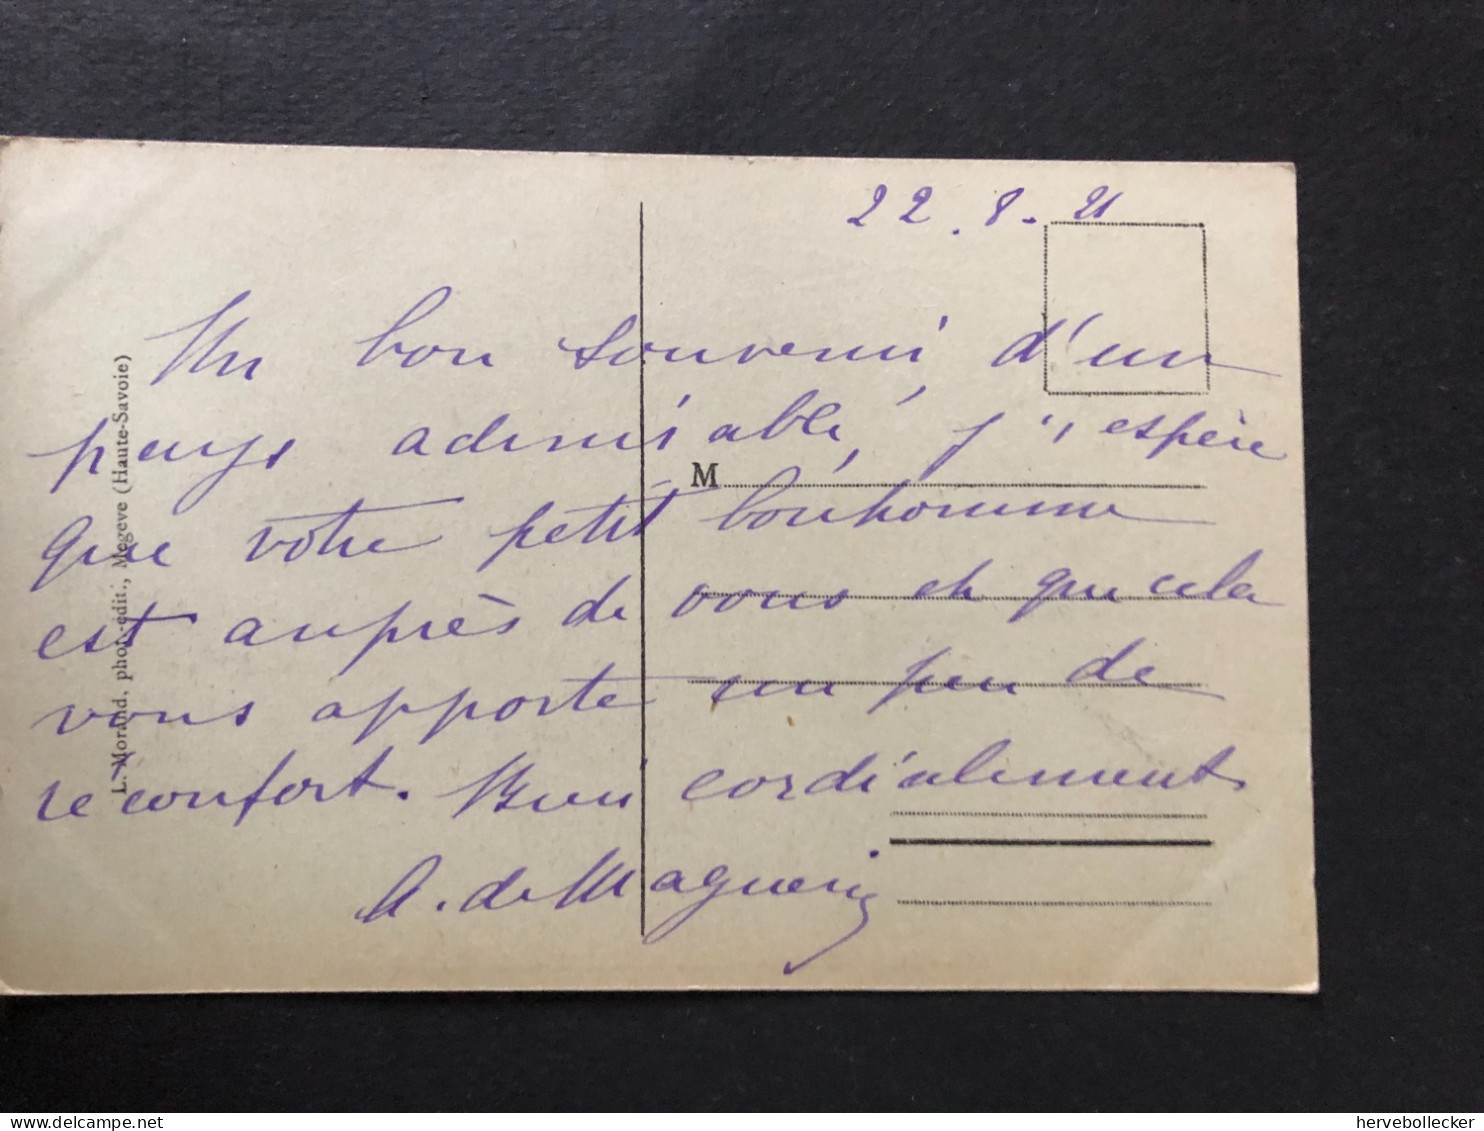 22.8.21
Un bon souvenir d'un
pays admirable, j'espère
que votre petit bonhomme
est auprès de vous et que cela
vous apporte un peu de
réconfort. Bien cordialement
A. de
M
L. Morand, phot.-édit., Megève (Haute-Savoie)
delcampe.net
hervebollecker